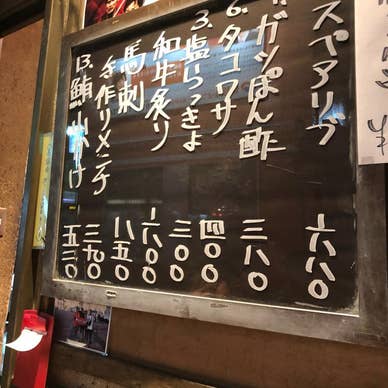 スペアリブ 六八〇
ガツぽん酢 三八〇
6.タコワサ 四〇〇
3.塩らっきょ 三〇〇
和牛炙り
馬刺 八五〇
手作りメンチ 三九〇
13.鮪山かけ 五三〇